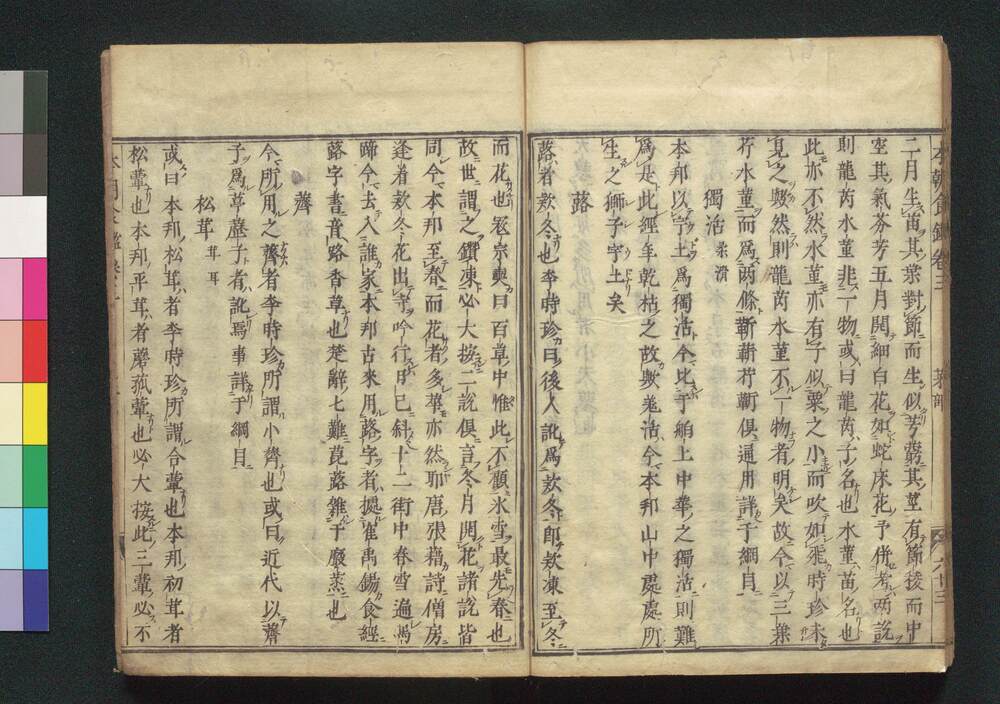 二月生苗其葉對節而生似芎藭其莖有節後而中
空其氣芬芳五月開細白花如蛇床花予併考兩說
則龍芮水菫非一物或曰龍芮子名也水菫苗名也
此亦不然水菫亦有子似粟之小而吹如飛時珍未
見之歟然則龍芮水菫不一物者明矣故今以三葉
芹水菫而爲兩條斳蘄芹蘄俱通用詳于綱目
獨活 柔滑
本邦以宁土爲獨活今比于舶上中華之獨活則難
爲是此經年乾枯之故歟羗活今本邦山中處處所
生之獅子宇土矣
蕗
蕗者欵冬也李時珍曰後人訛爲欵冬即欵凍至冬
而花也宼宗奭曰百草中惟此不顧氷雪最先春也
故世謂之鑽凍必大按二說俱言冬月開花諸說皆
同今本邦至春而花者多華亦然耶唐張籍詩僧房
逢着欵冬花出寺吟行日已斜十二街中春雪遍馬
蹄今去入誰家本邦古來用蕗字者據崔禹錫食經
蕗字書音路香草也楚辭七難菎蕗雜于黀蒸也
薺
今所用之薺者李時珍所謂小薺也或曰近代以薺
子爲葶藶子者訛焉事詳于綱目
松茸 茸耳
或曰本邦松茸者李時珍所謂合蕈也本邦初茸者
松蕈也本邦平茸者蘑菰蕈也必大按此三蕈必不